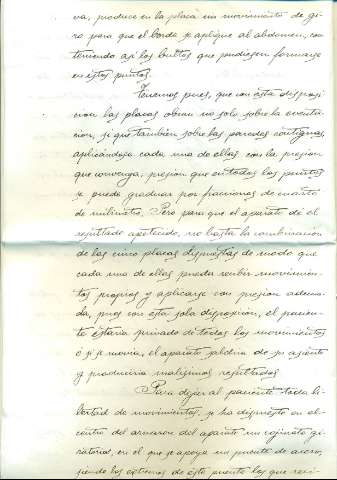 va, produce en la placa un movimiento de gi-
ro para que el borde se aplique al abdomen, con
teniendo así los bultos que pudiesen formarse
en estos puntos.
Tenemos pues, que con esta disposi-
cion las placas obran no solo sobre la eventra
cion, si que también sobre las paredes contiguas,
aplicándose cada una de ellas con la presion
que convenga, presion que en todos los puntos
se puede graduar por fracciones de cuarto
de milímetro. Pero para que el aparato dé el
resultado apetecido, no basta la combinacion
de las cinco placas dispuestas de modo que
cada una de ellas pueda recibir movimien-
tos propios y aplicarse con presion adecua-
da, pues con esta sola disposicion, el pacien-
te estaria privado de todos los movimientos
ó si se movia, el aparato saldria de su asiento
y produciria malisimos resultados.
Para dejar al paciente toda li-
bertad de movimientos, se ha dispuesto en el
centro del armazon del aparato un cojinete gi-
ratorio, en el que se apoya un puente de acero,
siendo los extremos de éste puente los que reci-